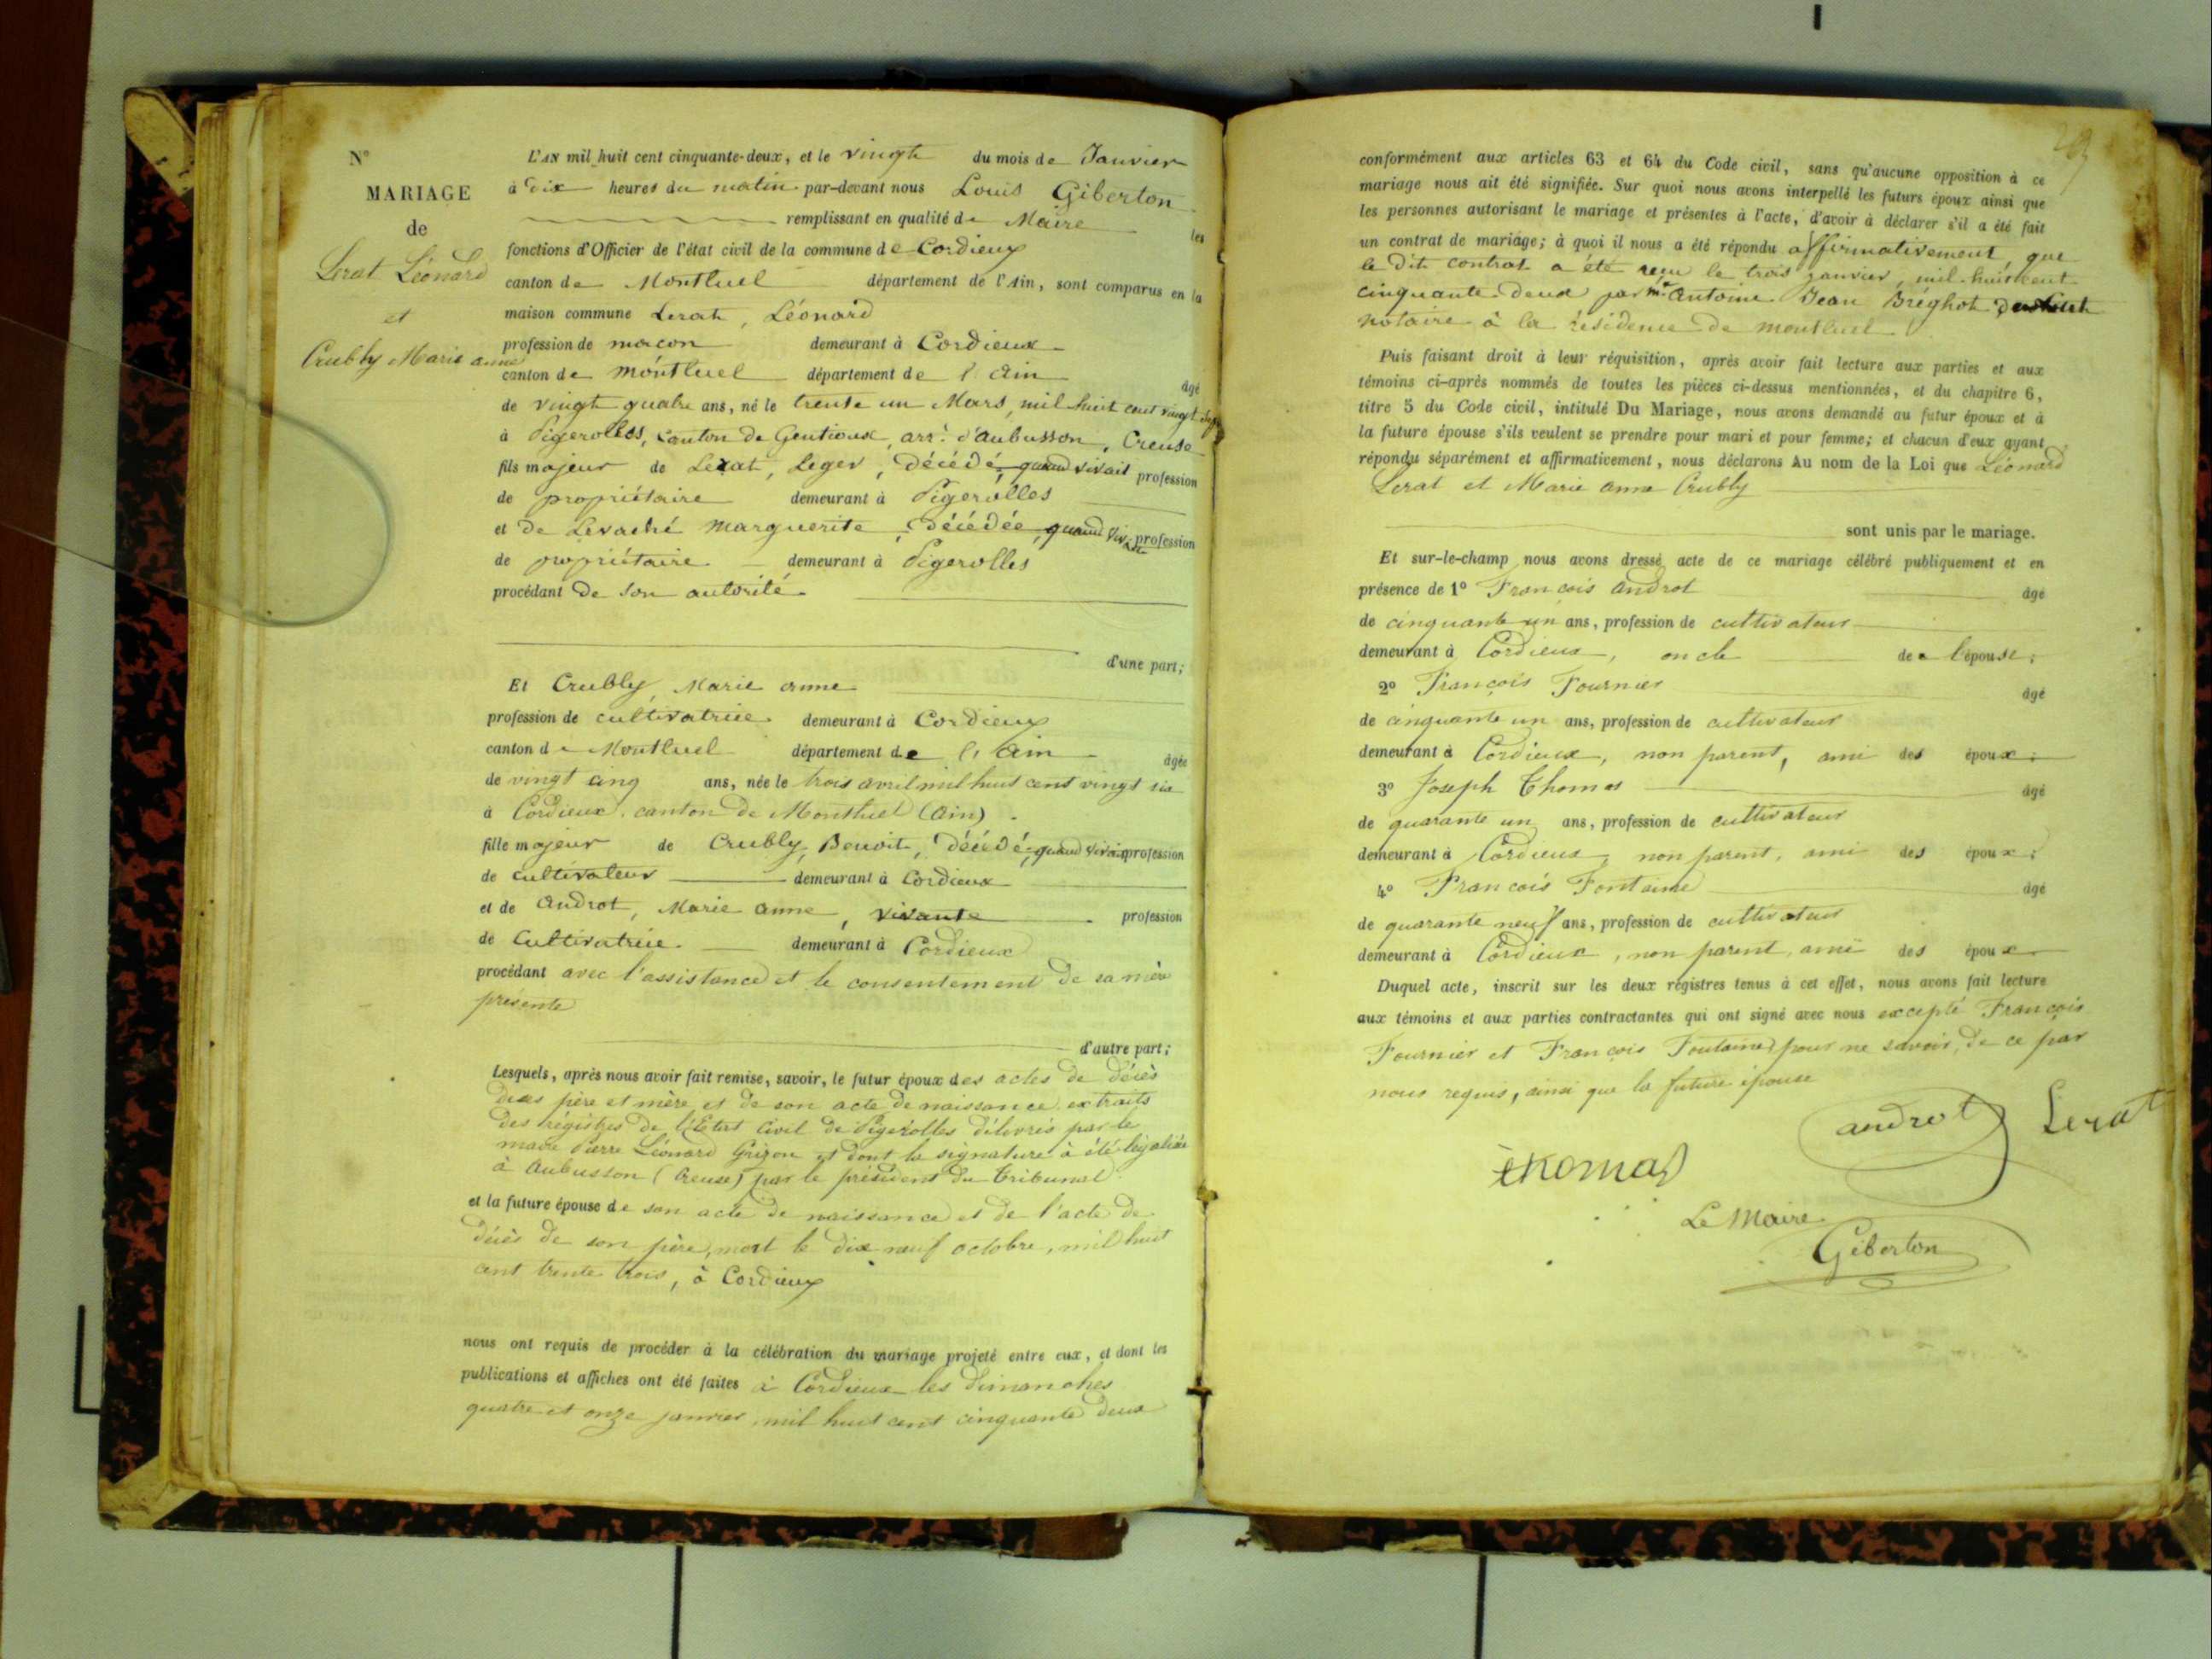 N°
MARIAGE
de
Lerat Léonard
et
Crubly Marie anne
L'AN mil huit cent cinquante-deux, et le vingt du mois de Janvier
à dix heures du matin par-devant nous Louis Giberton
remplissant en qualité de Maire les
fonctions d'Officier de l'état civil de la commune de Cordieux
canton de Montluel département de l'Ain, sont comparus en la
maison commune Lerat, Léonard
profession de macon demeurant à Cordieux
canton de montluel département de l'ain âgé
de vingt quatre ans, né le trente un Mars mil huit cent vingt sept
à Pigerolles, canton de Gentioux, arr.t d'aubusson, Creuse
fils majeur de Lerat, Leger, décédé, quand vivait profession
de propriétaire demeurant à Pigerolles
et de Levaché marguerite, décédée, quand vivait profession
de propriétaire demeurant à Pigerolles
procédant de son autorité
d'une part;
Et Crubly, Marie anne
profession de cultivatrice demeurant à Cordieux
canton de Montluel département de l'ain âgée
de vingt cinq ans, née le trois avril mil huit cent vingt six
à Cordieux, canton de Montluel (ain).
fille majeur de Crubly, Benoit, décédé, quand vivait profession
de cultivateur demeurant à Cordieux
et de androt, Marie anne, vivante profession
de cultivatrice demeurant à Cordieux
procédant avec l'assistance et le consentement de sa mère
présente
d'autre part;
Lesquels, après nous avoir fait remise, savoir, le futur époux des actes de décès
des père et mère et de son acte de naissance extraits
des régistres de l'Etat Civil de Pigerolles délivrés par le
maire Pierre Léonard Grizon et dont la signature à été légalisée
à aubusson (Creuse) par le président du tribunal.
et la future épouse de son acte de naissance et de l'acte de
décès de son père, mort le dix neuf octobre, mil huit
cent trente trois, à Cordieux
nous ont requis de procéder à la célébration du mariage projeté entre eux, et dont les
publications et affiches ont été faites à Cordieux les dimanches
quatre et onze janvier mil huit cent cinquante deux
29
conformément aux articles 63 et 64 du Code civil, sans qu'aucune opposition à ce
mariage nous ait été signifiée. Sur quoi nous avons interpellé les futurs époux ainsi que
les personnes autorisant le mariage et présentes à l'acte, d'avoir à déclarer s'il a été fait
un contrat de mariage; à quoi il nous a été répondu affirmativement, que
le dit contrat a été reçu le trois janvier, mil huit cent
cinquante deux par me antoine Jean Bréghot
notaire à la résidence de montluel
Puis faisant droit à leur réquisition, après avoir fait lecture aux parties et aux
témoins ci-après nommés de toutes les pièces ci-dessus mentionnées, et du chapitre 6,
titre 5 du Code civil, intitulé Du Mariage, nous avons demandé au futur époux et à
la future épouse s'ils veulent se prendre pour mari et pour femme; et chacun d'eux ayant
répondu séparément et affirmativement, nous déclarons Au nom de la Loi que Léonard
Lerat et Marie anne Crubly
sont unis par le mariage.
Et sur-le-champ nous avons dressé acte de ce mariage célébré publiquement et en
présence de 1° François androt âgé
de cinquante un ans, profession de cultivateur
demeurant à Cordieux, oncle de l'épouse;
2° François Fournier âgé
de cinquante un ans, profession de cultivateur
demeurant à Cordieux, non parent, ami des époux;
3° Joseph Thomas âgé
de quarante un ans, profession de cultivateur
demeurant à Cordieux, non parent, ami des époux;
4° François Fontaine âgé
de quarante neuf ans, profession de cultivateur
demeurant à Cordieux, non parent, ami des époux
Duquel acte, inscrit sur les deux régistres tenus à cet effet, nous avons fait lecture
aux témoins et aux parties contractantes qui ont signé avec nous excepté François
Fournier et François Fontaine, pour ne savoir, de ce par
nous requis, ainsi que la future épouse
androt Lerat
thomas
Le Maire
Giberton